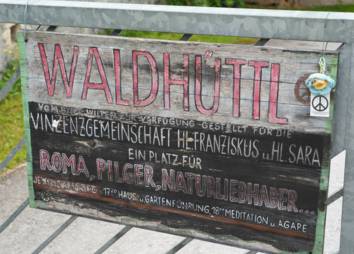 WALDHÜTTL
VOM STIFT WILTEN ZUR VERFÜGUNG GESTELLT FÜR DIE
VINZENZGEMEINSCHAFT HL. FRANZISKUS u. HL SARA
EIN PLATZ FÜR
ROMA, PILGER, NATURLIEBHABER...
17⁰⁰ HAUS- u. GARTENFÜHRUNG, 18⁰⁰ MEDITATION u. AGAPE